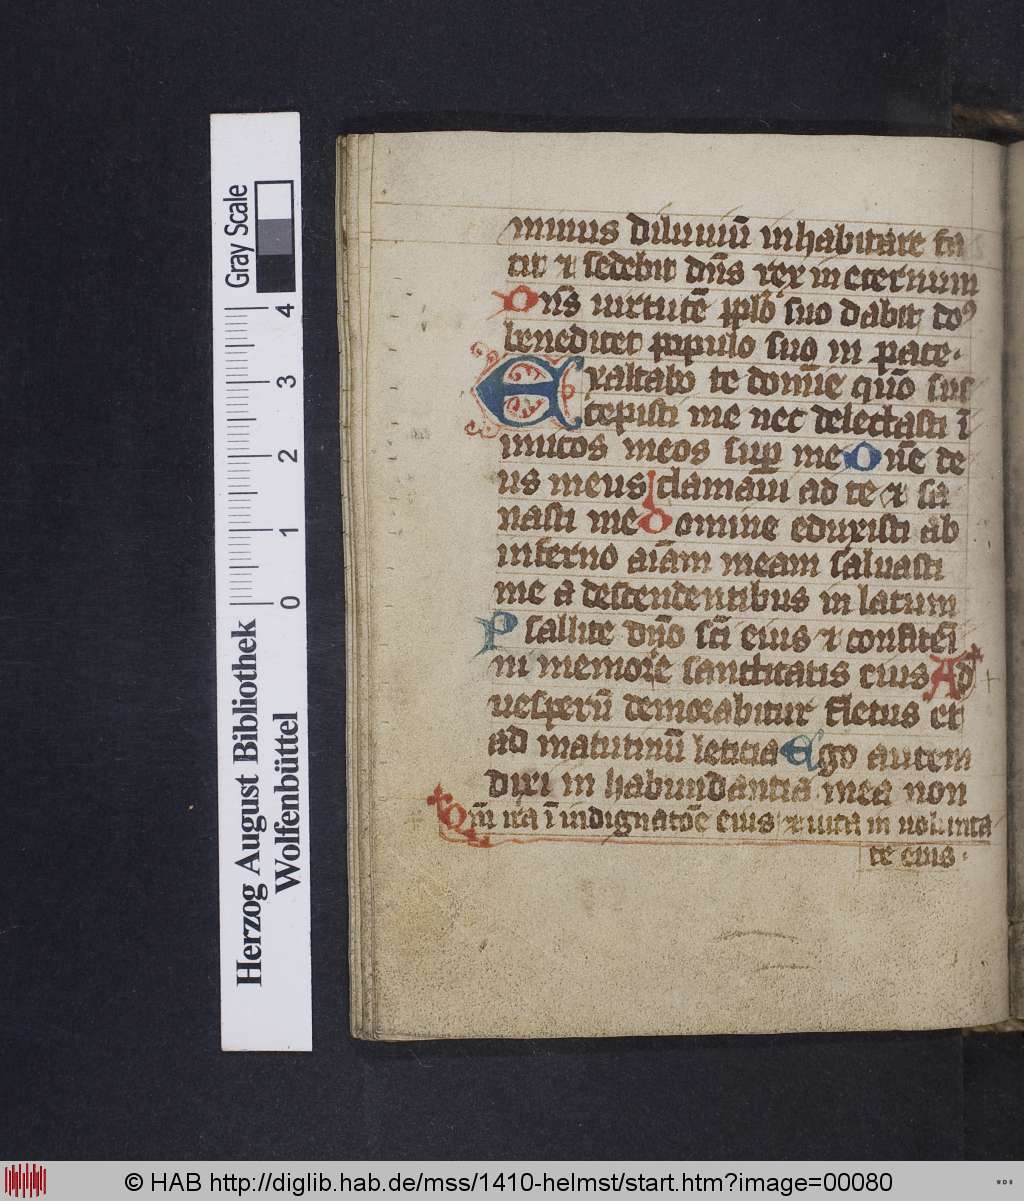 minus diluuiū inhabitare fa
cit ⁊ sedebit dn̄s rex in eternum
Dn̄s uirtutē ꝓplo suo dabit do
benedicet populo suo in pace.
Exaltabo te domīe quō sus
cepisti me nec delectasti ī
imicos meos suꝑ me Dn̄e de
us meus clamaui ad te ⁊ sa
nasti me Domine eduxisti ab
inferno aīam meam saluasti
me a descendentibus in lacum
Psallite dn̄o sc̄i eius ⁊ confitem̄i
ni memorie sanctitatis eius Ad
uesperū demorabitur fletus et
ad matutinū leticia Ego autem
dixi in habundantia mea non
Qm̄ ira ī indignatōe eius ⁊ uita in uolunta
te eius.
Gray Scale
0 1 2 3 4
Herzog August Bibliothek
Wolfenbüttel
© HAB http://diglib.hab.de/mss/1410-helmst/start.htm?image=00080